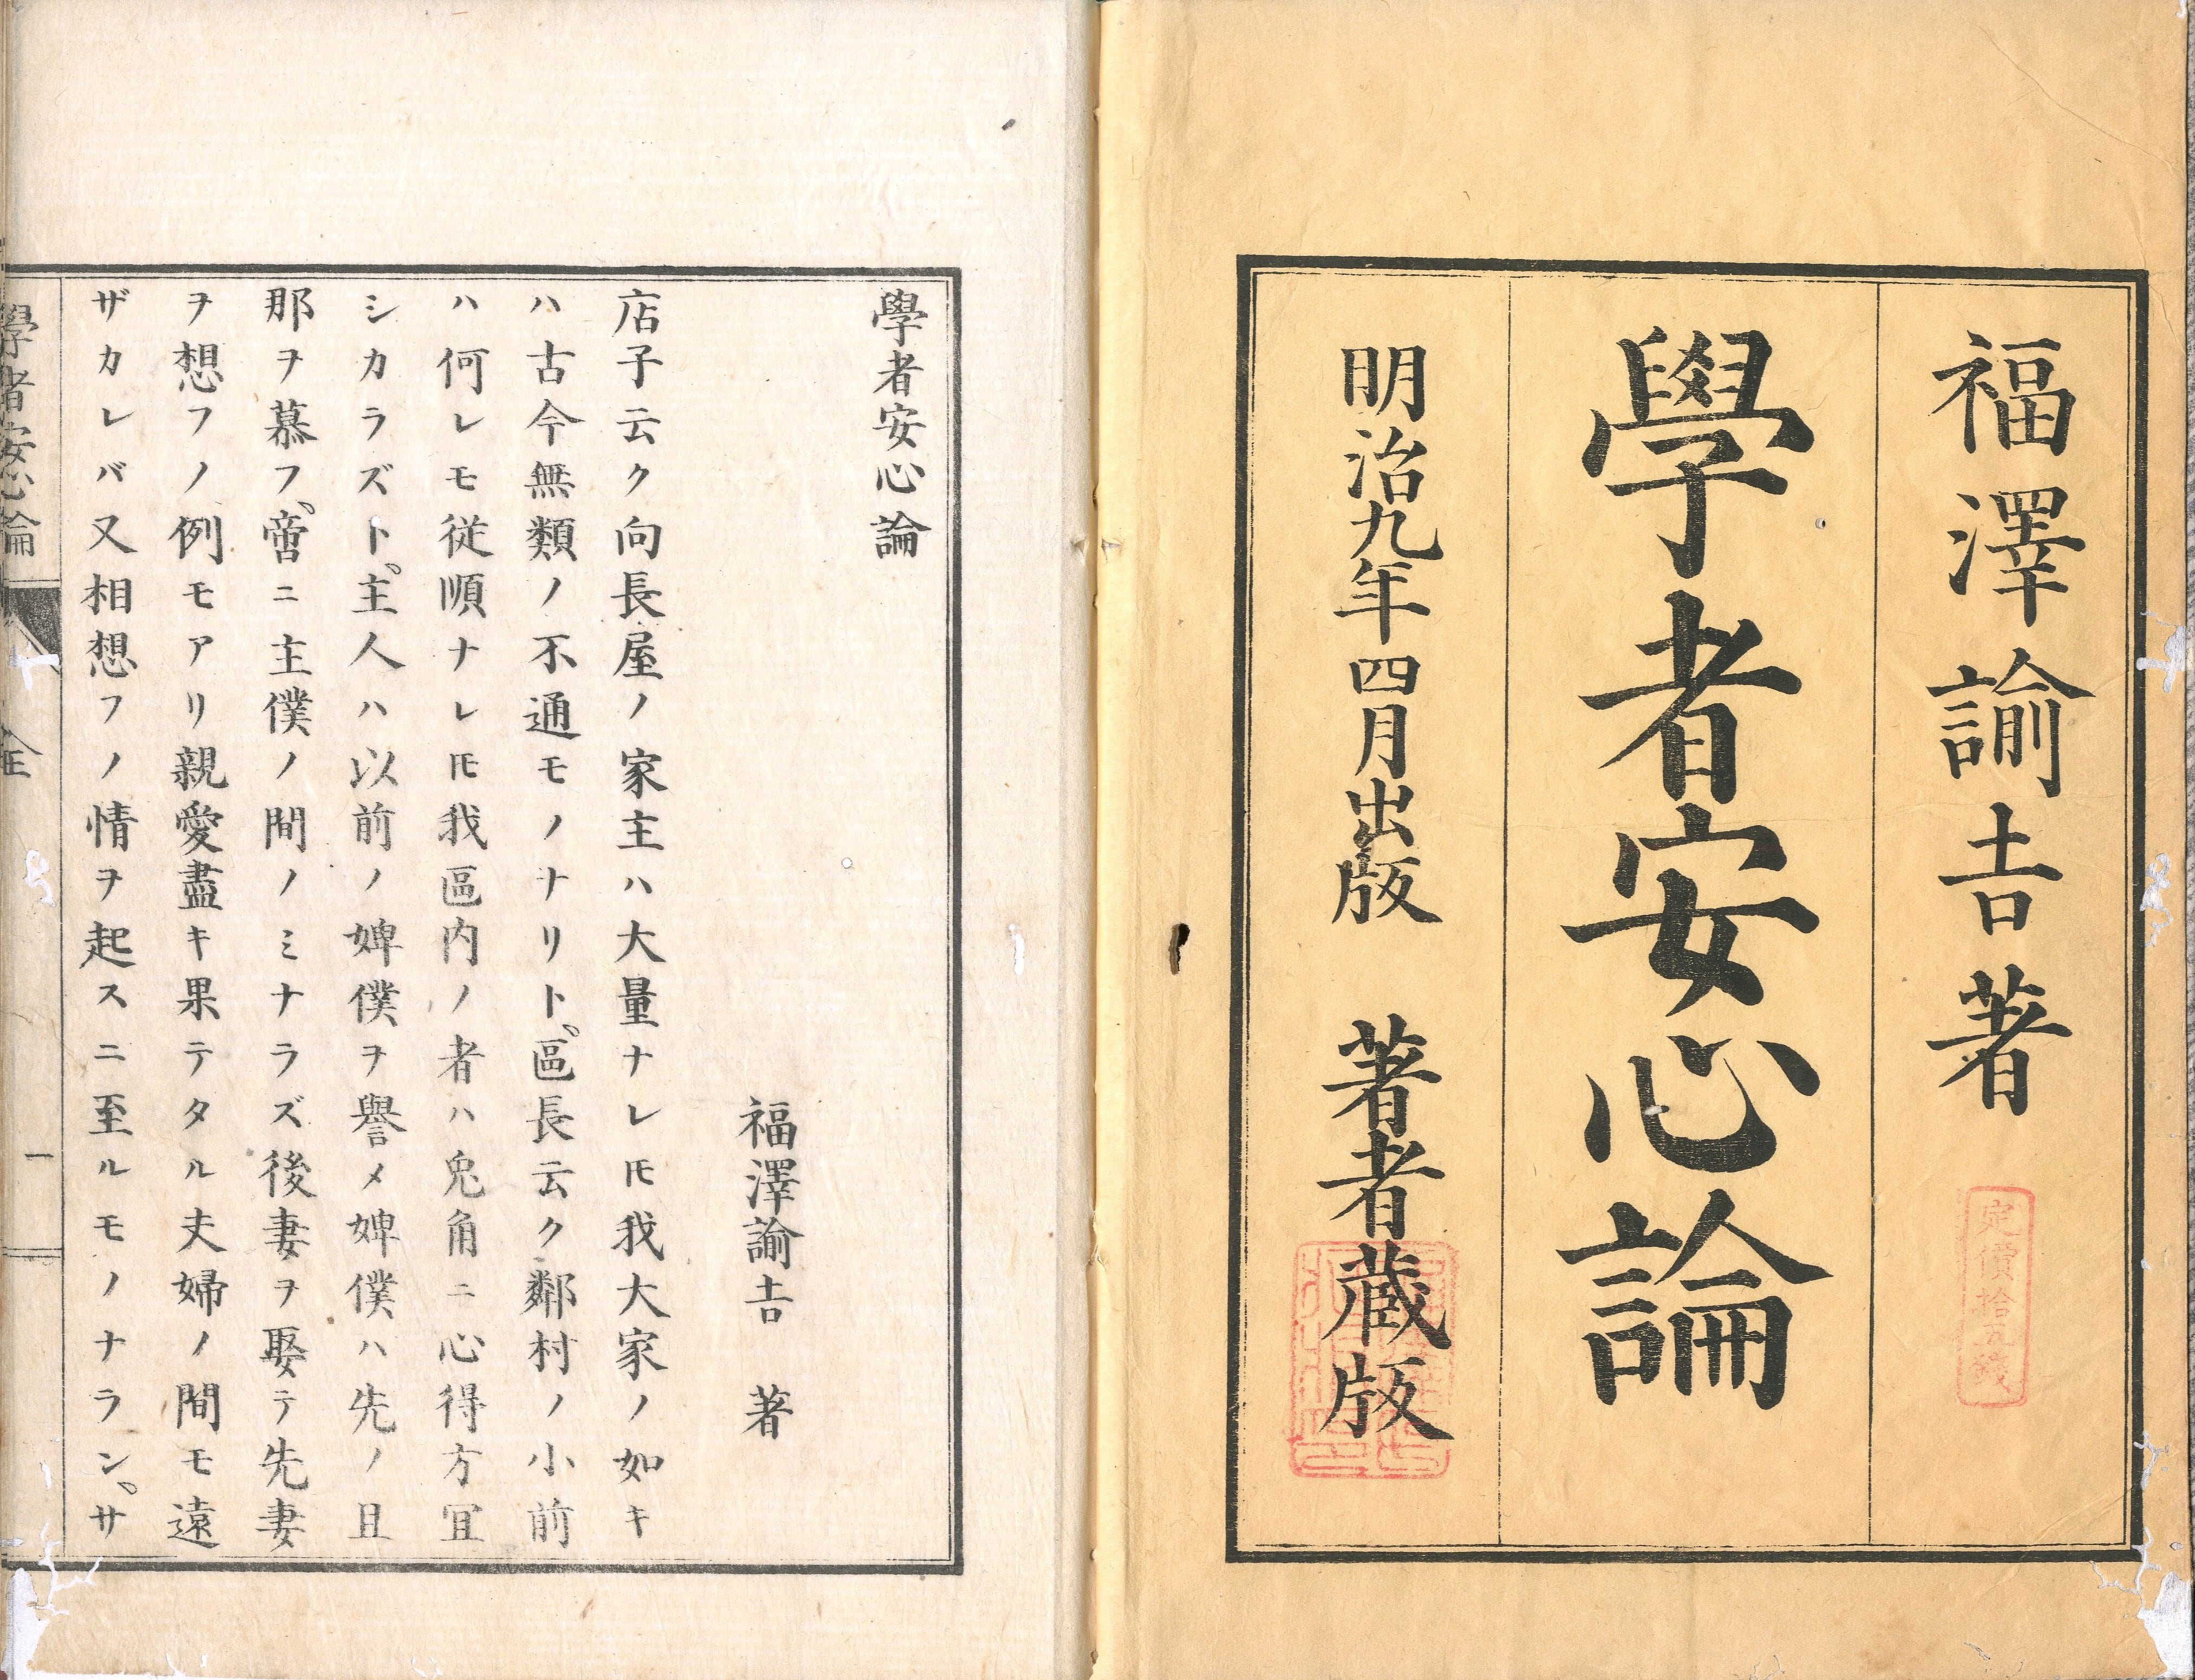 福澤諭吉著
定價拾五錢
學者安心論
明治九年四月出版　著者蔵版
學者安心論
福澤諭吉　著
店子云ク向長屋ノ家主ハ大量ナレ𪜈我大家ノ如キ
ハ古今無類ノ不通モノナリト。區長云ク鄰村ノ小前
ハ何レモ従順ナレ𪜈我區内ノ者ハ兎角ニ心得方冝
シカラズト。主人ハ以前ノ婢僕ヲ譽メ婢僕ハ先ノ旦
那ヲ慕フ。啻ニ主僕ノ間ノミナラズ後妻ヲ娶テ先妻
ヲ想フノ例モアリ親愛盡キ果テタル夫婦ノ間モ遠
ザカレバ又相想フノ情ヲ起スニ至ルモノナラン。サ
學者安心論　全　一